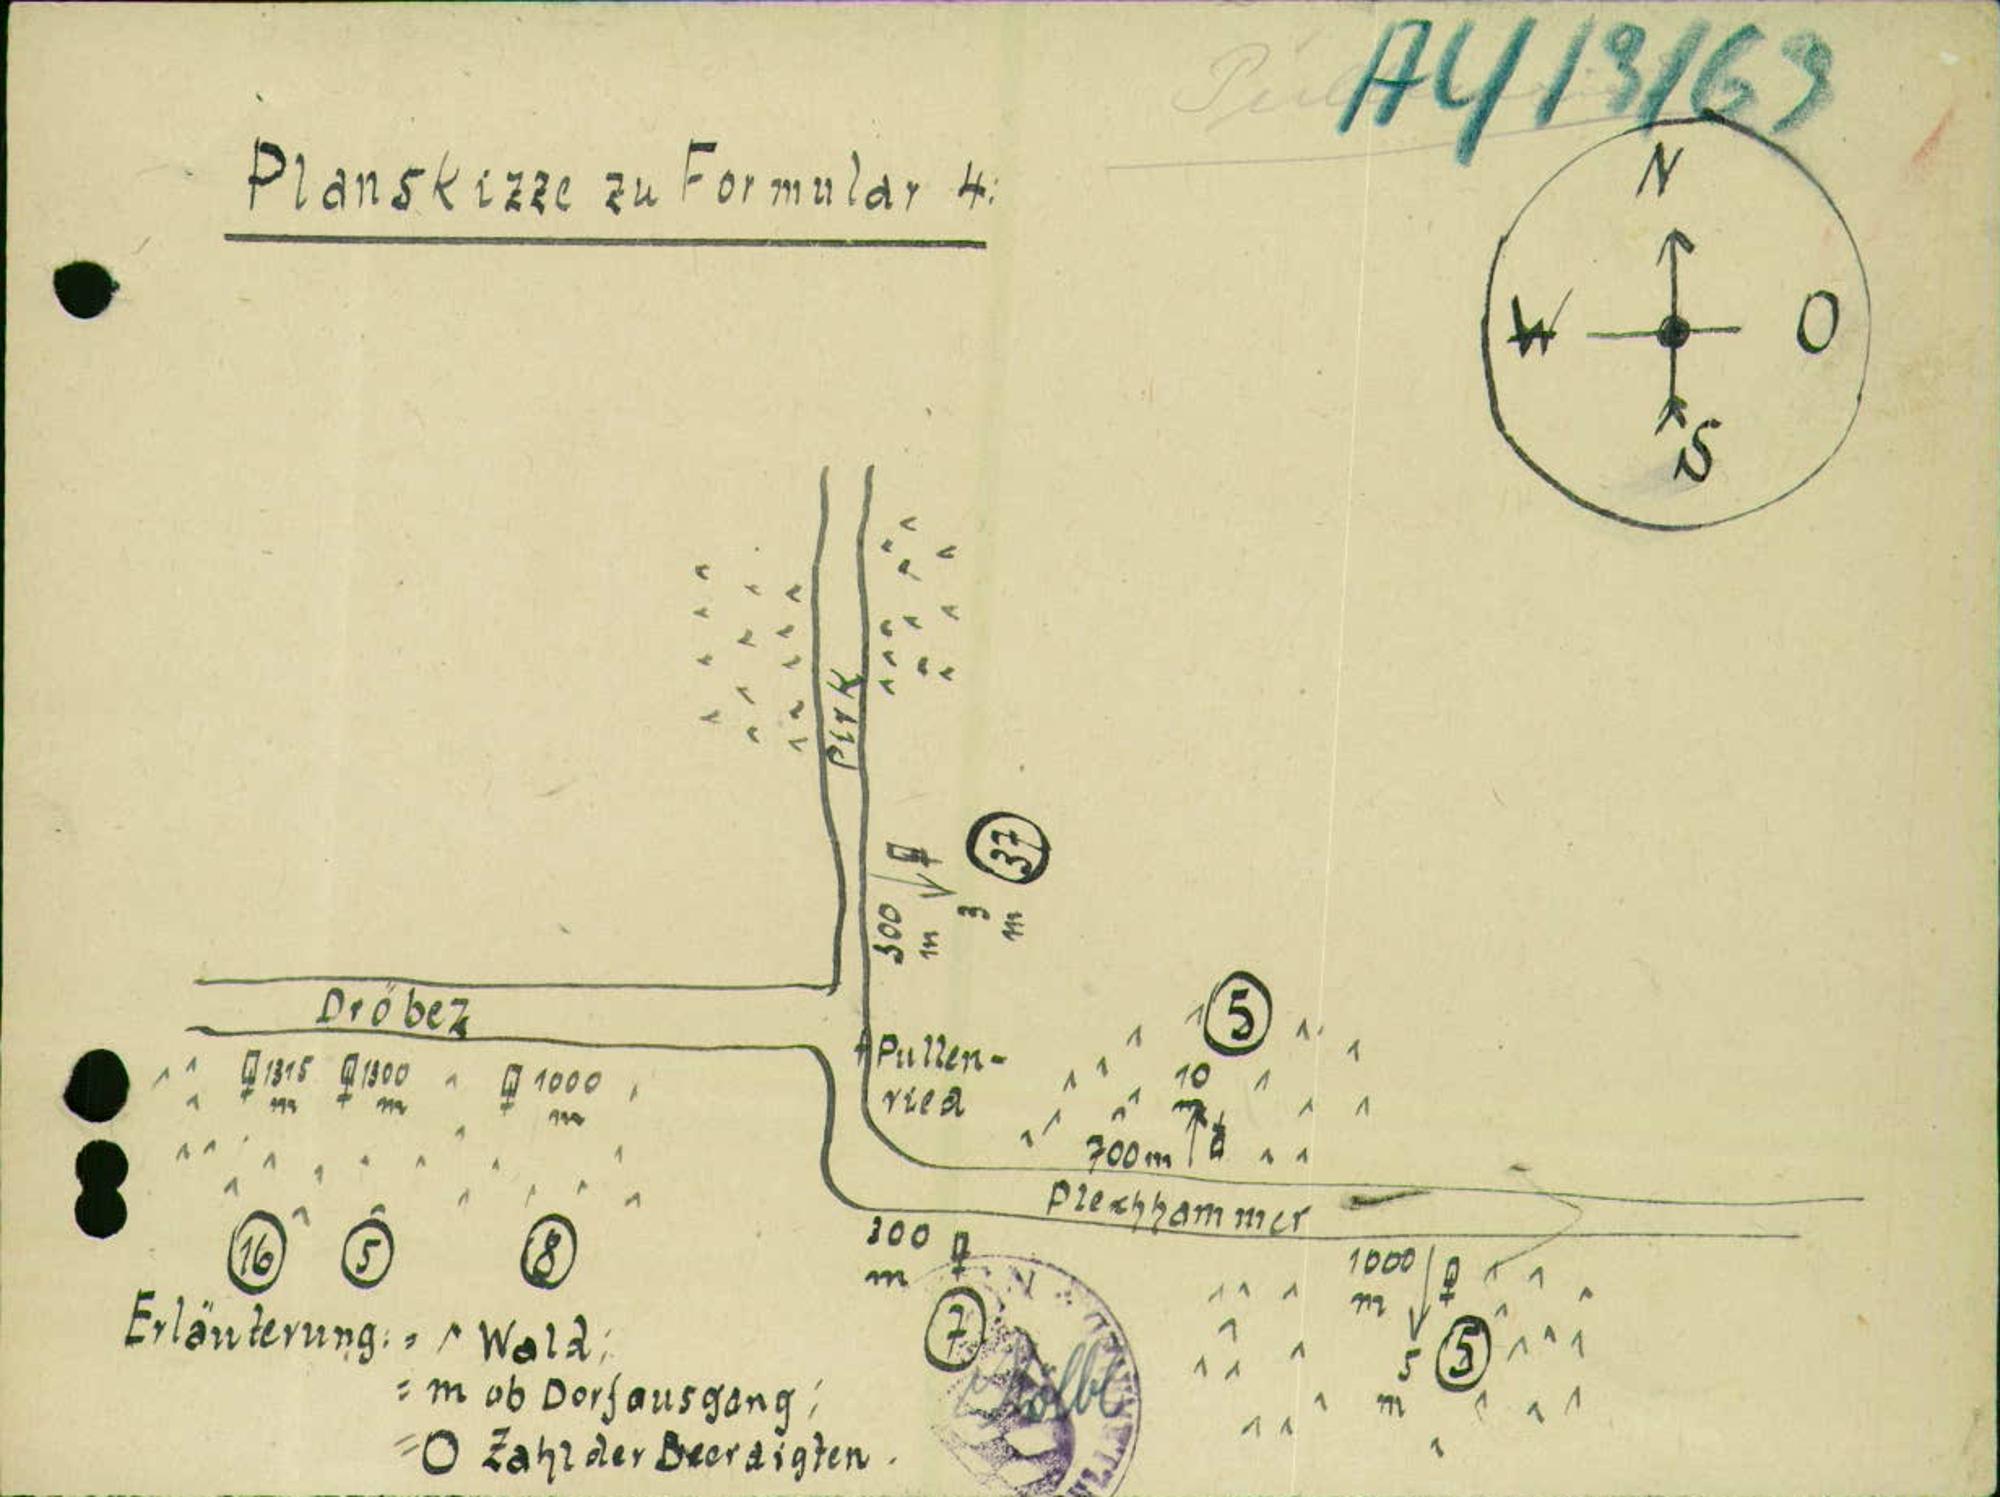 A4/13/69
Planskizze zu Formular 4:
N
W O
S
Pirk
37
300 m
3 m
Dröbez
Pullen-
ried
5
10 m
700 m
1315 m
1300 m
1000 m
16
5
8
Plechhammer
300 m
7
1000 m
5 m
5
Erläuterung: = ^ Wald;
= m ab Dorfausgang;
= O Zahl der Beerdigten.